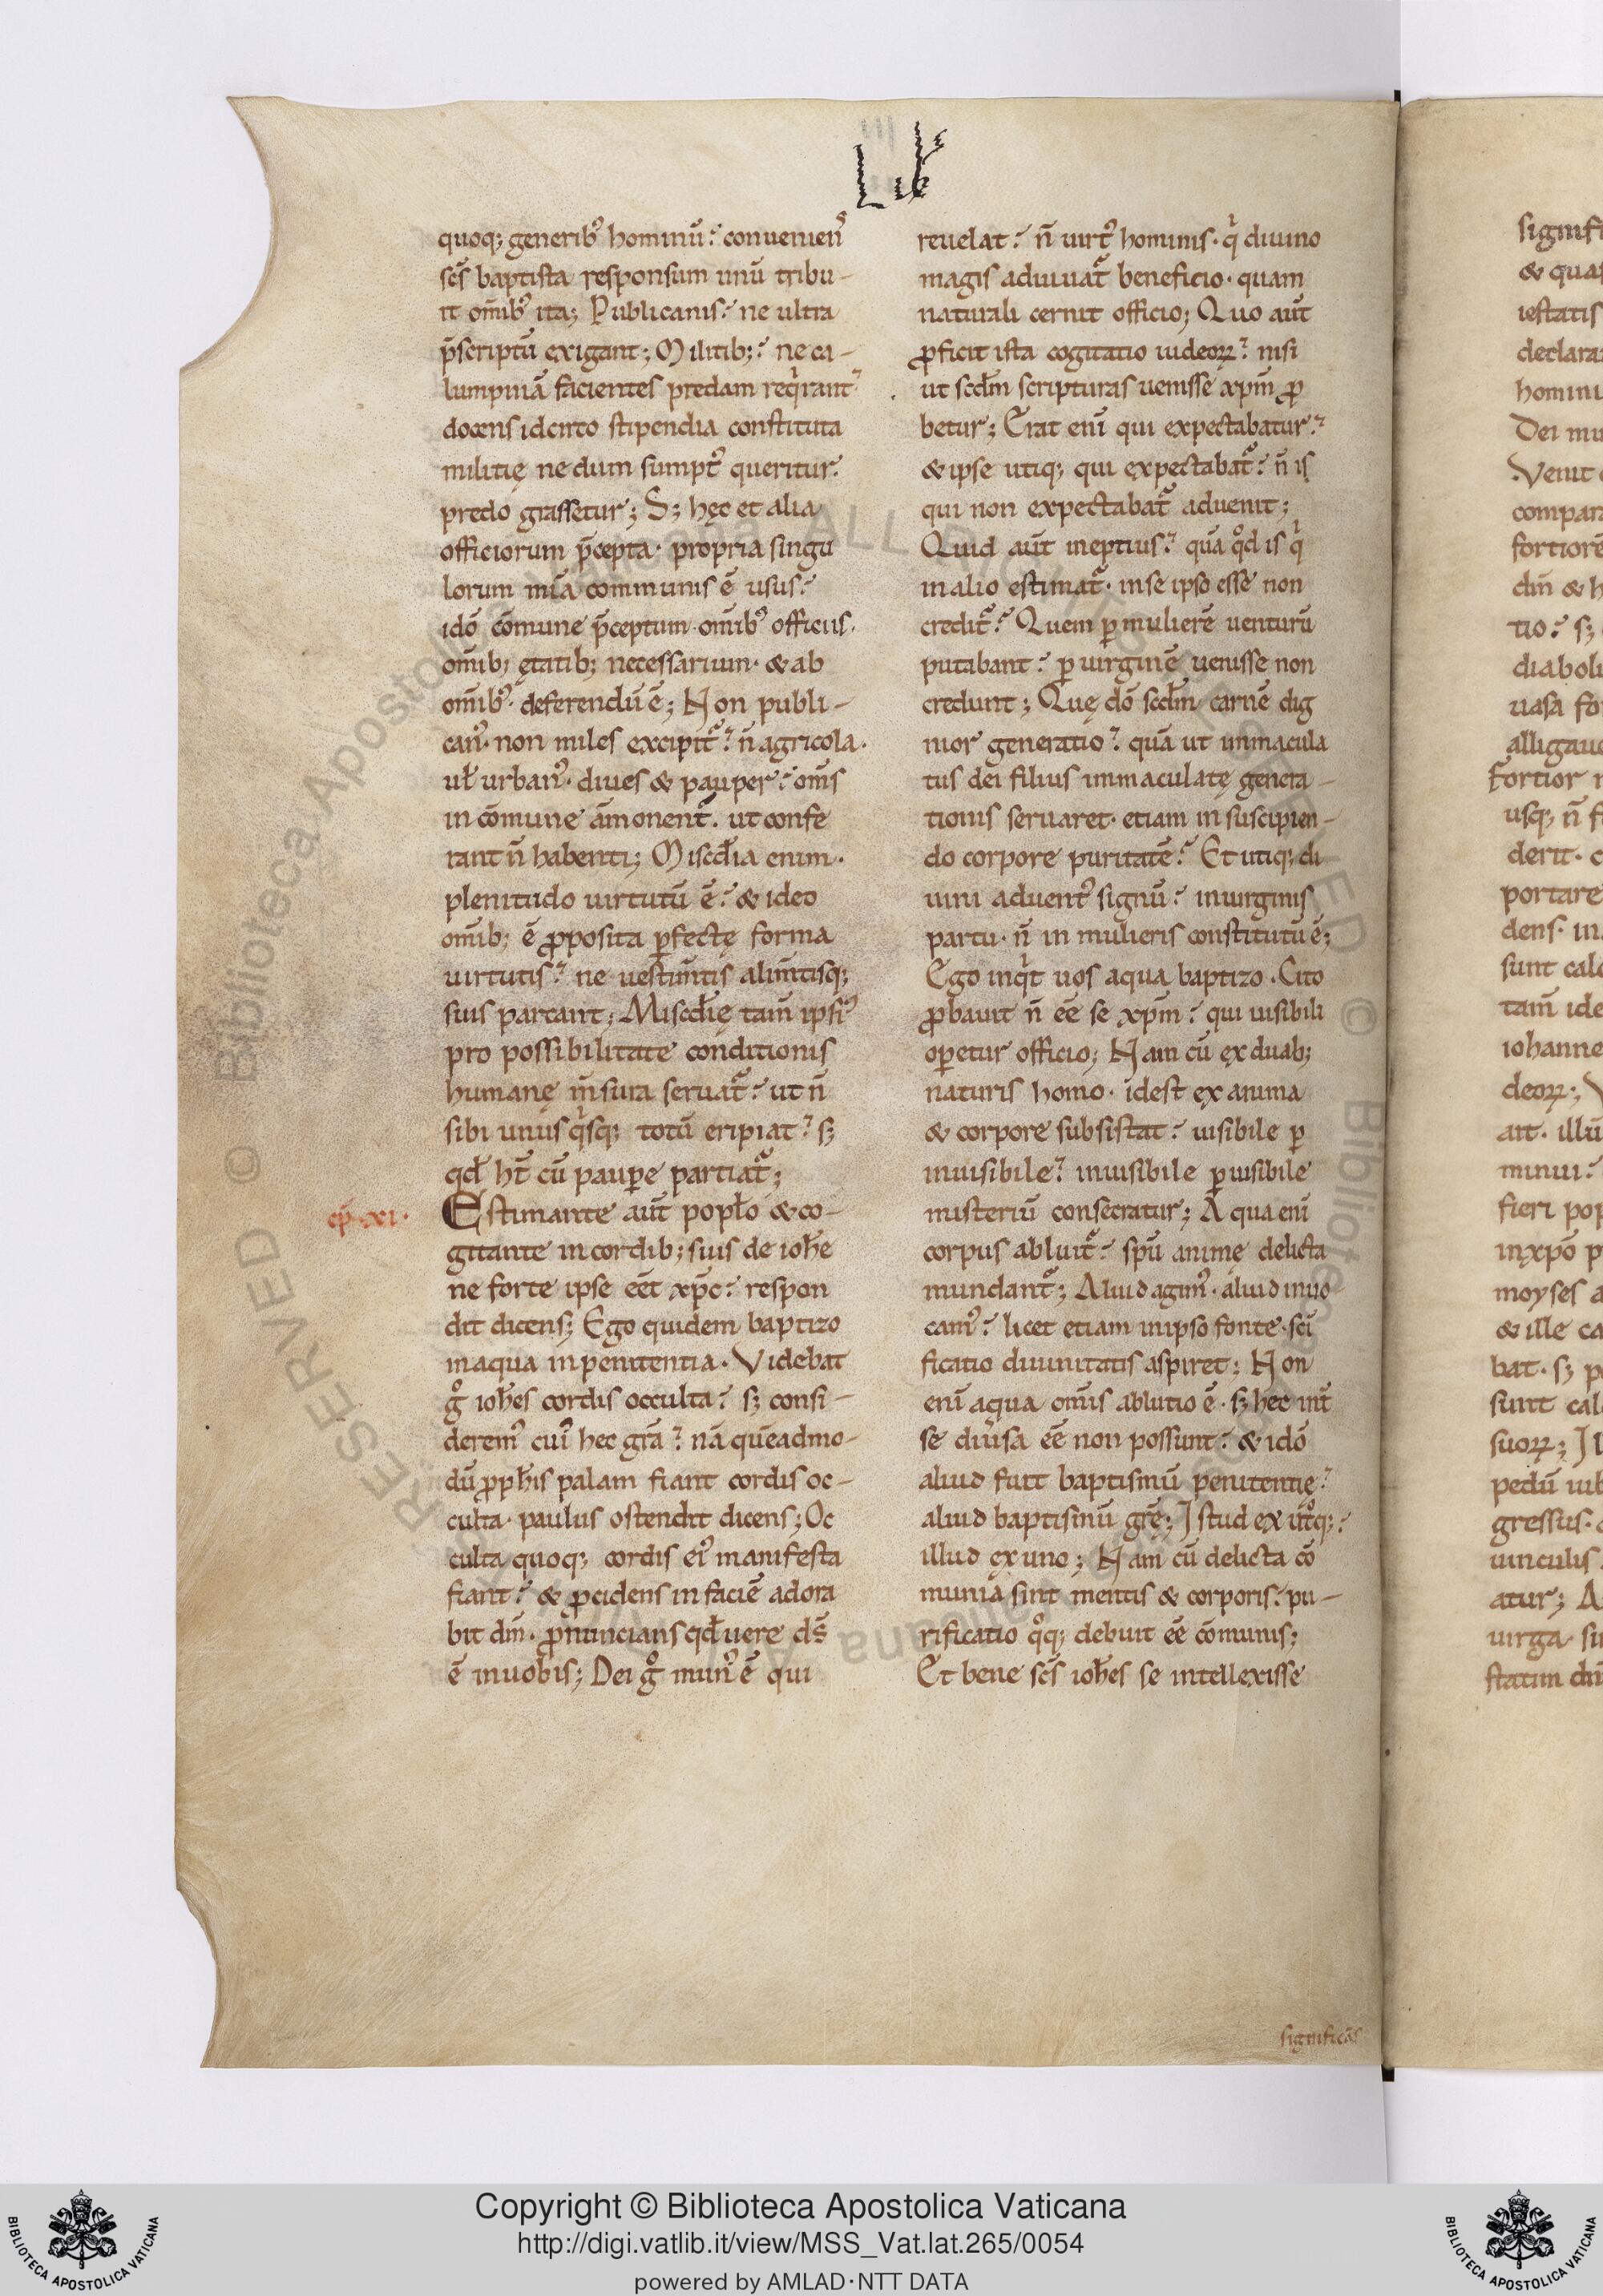 Lib
quoq; generib᷒ hominū? conuenien᷒
sc̄s baptista responsum unū tribu-
it om̄ib᷒ ita; Publicanis? ne ultra
p̄scriptū exigant; Militib;? ne ca-
lumpniā facientes predam reqͥrant?
docens idcirco stipendia constituta
militię ne dum sumpt᷒ queritur?
predo grassetur; S; hęc et alia
officiorum p̄cepta· propria singu
lorum mi͞a communis ē usus?
idō cōmune p̄ceptum om̄ib᷒ officiis·
om̄ib; ętatib; necessarium· & ab
om̄ib᷒· deferendū ē; Non publi-
can᷒· non miles excipit᷑? n̄ agricola·
ul̄ urban᷒· diues & pauper? om̄s
in cōmune āmonent᷑. ut confe
rant n̄ habenti; Miscd̄ia enim·
plenitudo uirtutū ē? & ideo
om̄ib; ē ꝓposita ꝑfectę forma
uirtutis? ne uestim̄tis alim̄tisq;
suis parcant; Miscd̄ię tam̄ ipsi᷒
pro possibilitate conditionis
humanę m̄sura seruat᷑? ut n̄
sibi unusqͥsq; totū eripiat? s;
qd̄ ht̄ cū pauꝑe partiat᷑;
cp̄·xi·
Estimante aūt popl̄o & co-
gitante in cordib; suis de ioh̄e
ne forte ipse eēt xp̄c? respon
dit dicens; Ego quidem baptizo
in aqua in penitentia· Videbat
gͦ ioh̄es cordis occulta? s; consi-
derem᷒ cui᷒ hec gr̄a? nā quēadmo-
dū ꝓph̄is palam fiant cordis oc-
culta· paulus ostendit dicens; Oc
culta quoq; cordis ei᷒ manifesta
fiant? & ꝓcidens in faciē adora
bit dm̄· ꝓnuncians qd̄ uere ds̄
ē in uobis; Dei gͦ mun᷒ ē qui
reuelat? n̄ uirt᷒ hominis· qͥ diuino
magis adiuuat᷑ beneficio· quam
naturali cernit officio; Quo aūt
ꝓficit ista cogitatio iudeoꝝ? nisi
ut scd̄m scripturas uenisse xp̄m ꝓ
betur; Erat enī qui expectabatur?
& ipse utiq; qui expectabat᷑? n̄ is
qui non expectabat᷑ aduenit;
Quid aūt ineptius? quā qͦd is qͥ
in alio estimat᷑· in se ipso esse non
credit᷑? Quem ꝑ mulierē uenturū
putabant? ꝑ uirginē uenisse non
credunt; Quę dō scd̄m carnē dig
nior generatio? quā ut inmacula
tus dei filius immaculatę genera-
tionis seruaret· etiam in suscipien-
do corpore puritatē? Et utiq; di
uini aduent᷒ signū? in uirginis
partu· n̄ in mulieris constitutū ē;
Ego inqͥt uos aqua baptizo· Cito
ꝓbauit n̄ eē se xp̄m? qui uisibili
oꝑetur officio; Nam cū ex duab;
naturis homo· idest ex anima
& corpore subsistat? uisibile ꝑ
inuisibile? inuisibile ꝑ uisibile
misteriū consecratur; Aqua enī
corpus abluit᷑? spū animę delicta
mundant᷑; Aliud agim᷒· aliud inuo
cam᷒? licet etiam in ipso fonte· sci͞
ficatio diuinitatis aspiret; Non
enī aqua om̄is ablutio ē· s; hec int̄
se diūsa eē non possunt? & idō
aliud fuit baptismū penitentię?
aliud baptismū gr̄ę; Istud ex ut̄ͦq;?
illud ex uno; Nam cū delicta cō
munia sint mentis & corporis? pu-
rificatio qͦq; debuit eē cōmunis;
Et bene sc̄s ioh̄es se intellexisse
significās
signifi
& quas
iestatis
declara
homini
Dei mu
Venit
compara
fortiorē
dm̄ & h
tio? s;
diaboli
uasa for
alligaue
Fortior n
usq; n̄ f
derit· c
portare
dens· in
sunt calc
tam̄ ide
iohanne
deoꝝ; V
ait· illū
minui?
fieri pop
in xpō p
moyses a
& ille ca
bat· s; p
sunt calc
suoꝝ; Il
pedū iub
gressus·
uinculis
atur; A
uirga· su
statim dn̄
© Biblioteca Apostolica Vaticana ALL RIGHTS RESERVED
Copyright © Biblioteca Apostolica Vaticana
http://digi.vatlib.it/view/MSS_Vat.lat.265/0054
powered by AMLAD·NTT DATA
BIBLIOTECA APOSTOLICA VATICANA
BIBLIOTECA APOSTOLICA VATICANA